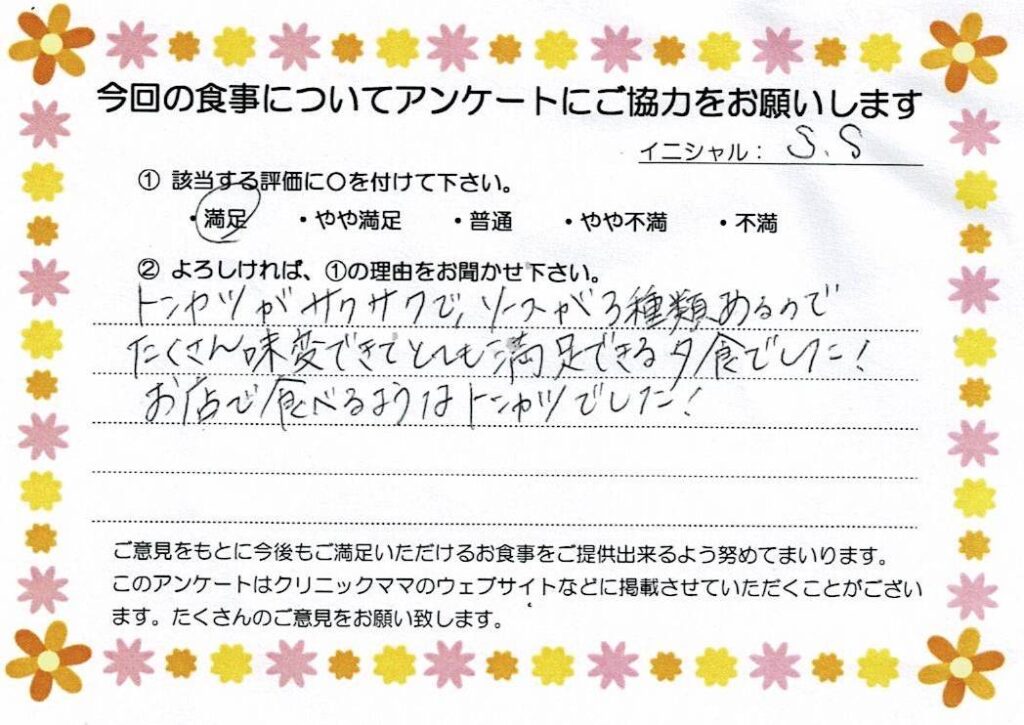 今回の食事についてアンケートにご協力をお願いします
イニシャル： S.S
① 該当する評価に〇を付けて下さい。
・満足 ・やや満足 ・普通 ・やや不満 ・不満
② よろしければ、①の理由をお聞かせ下さい。
トンカツがサクサクで、ソースが3種類あるので
たくさん味変できてとても満足できる夕食でした！
お店で食べるようなトンカツでした！
ご意見をもとに今後もご満足いただけるお食事をご提供出来るよう努めてまいります。
このアンケートはクリニックママのウェブサイトなどに掲載させていただくことがござい
ます。たくさんのご意見をお願い致します。